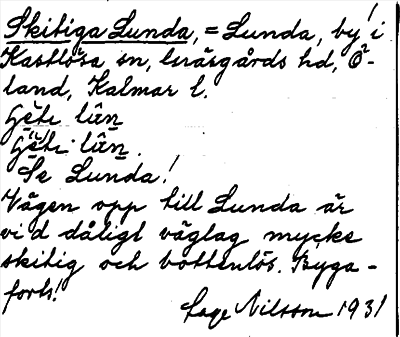 Skitiga Lunda, = Lunda, by i
Kastlösa sn, Gräsgårds hd, Ö-
land, Kalmar l.
Se Lunda!
Vägen opp till Lunda är
vid dåligt väglag mycke
skitig och bottenlös. Byga-
forts!
Lage Nilsson 1931